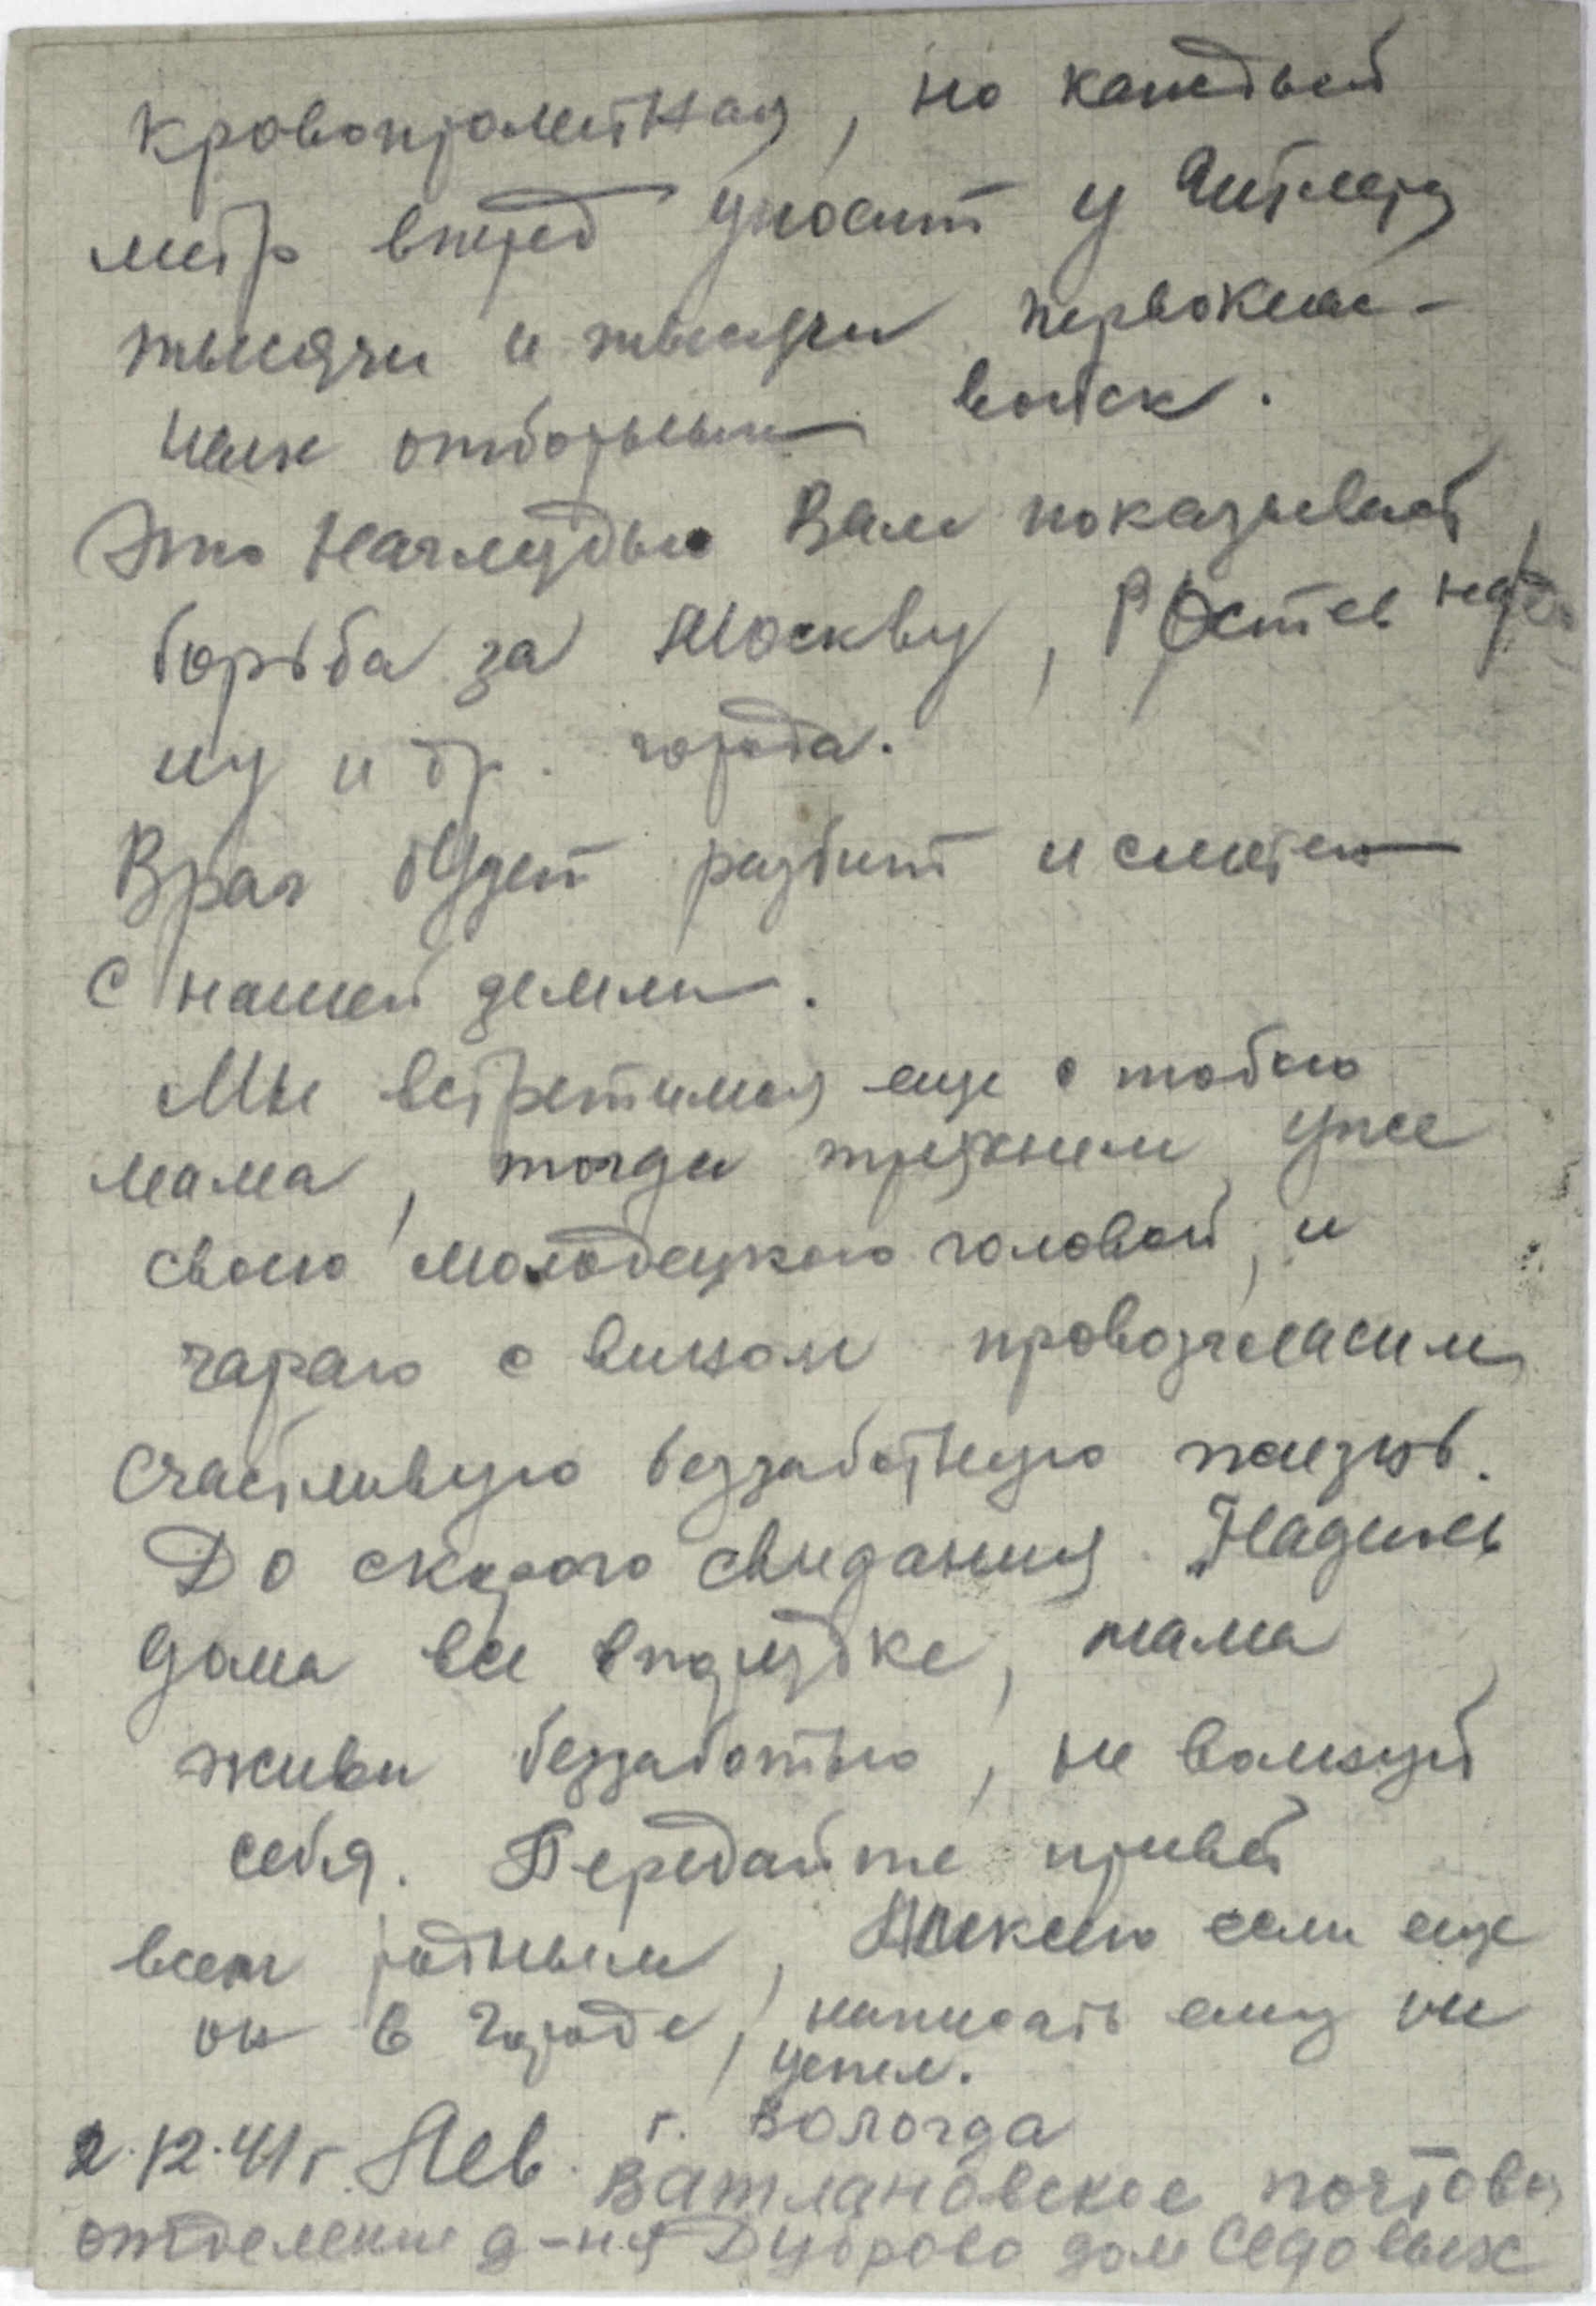 кровопролитная, но каждый
метр вперед уносит у Гитлера
тысячи и тысячи первоклас-
ных отборных войск.
Это наглядно Вам показывает
борьба за Москву, Ростов на До
ну и др. города.
Враг будет разбит и сметен
с нашей земли.
Мы встретимся еще с тобою
мама, тогда тряхнем уже
своею молодецкою головой, и
чараю с вином провозгласим
счастливую беззаботную жизнь.
До скорого свидания. Надеюсь
дома все в порядке, мама
живи беззаботно, не волнуй
себя. Передайте привет
всем родным, если еще
он в городе, написать ему не
успел.
2.12.41 г. Лев. г. Вологда
Ватлановское почтовое
отделение д-ня Дуброво дом Седовых